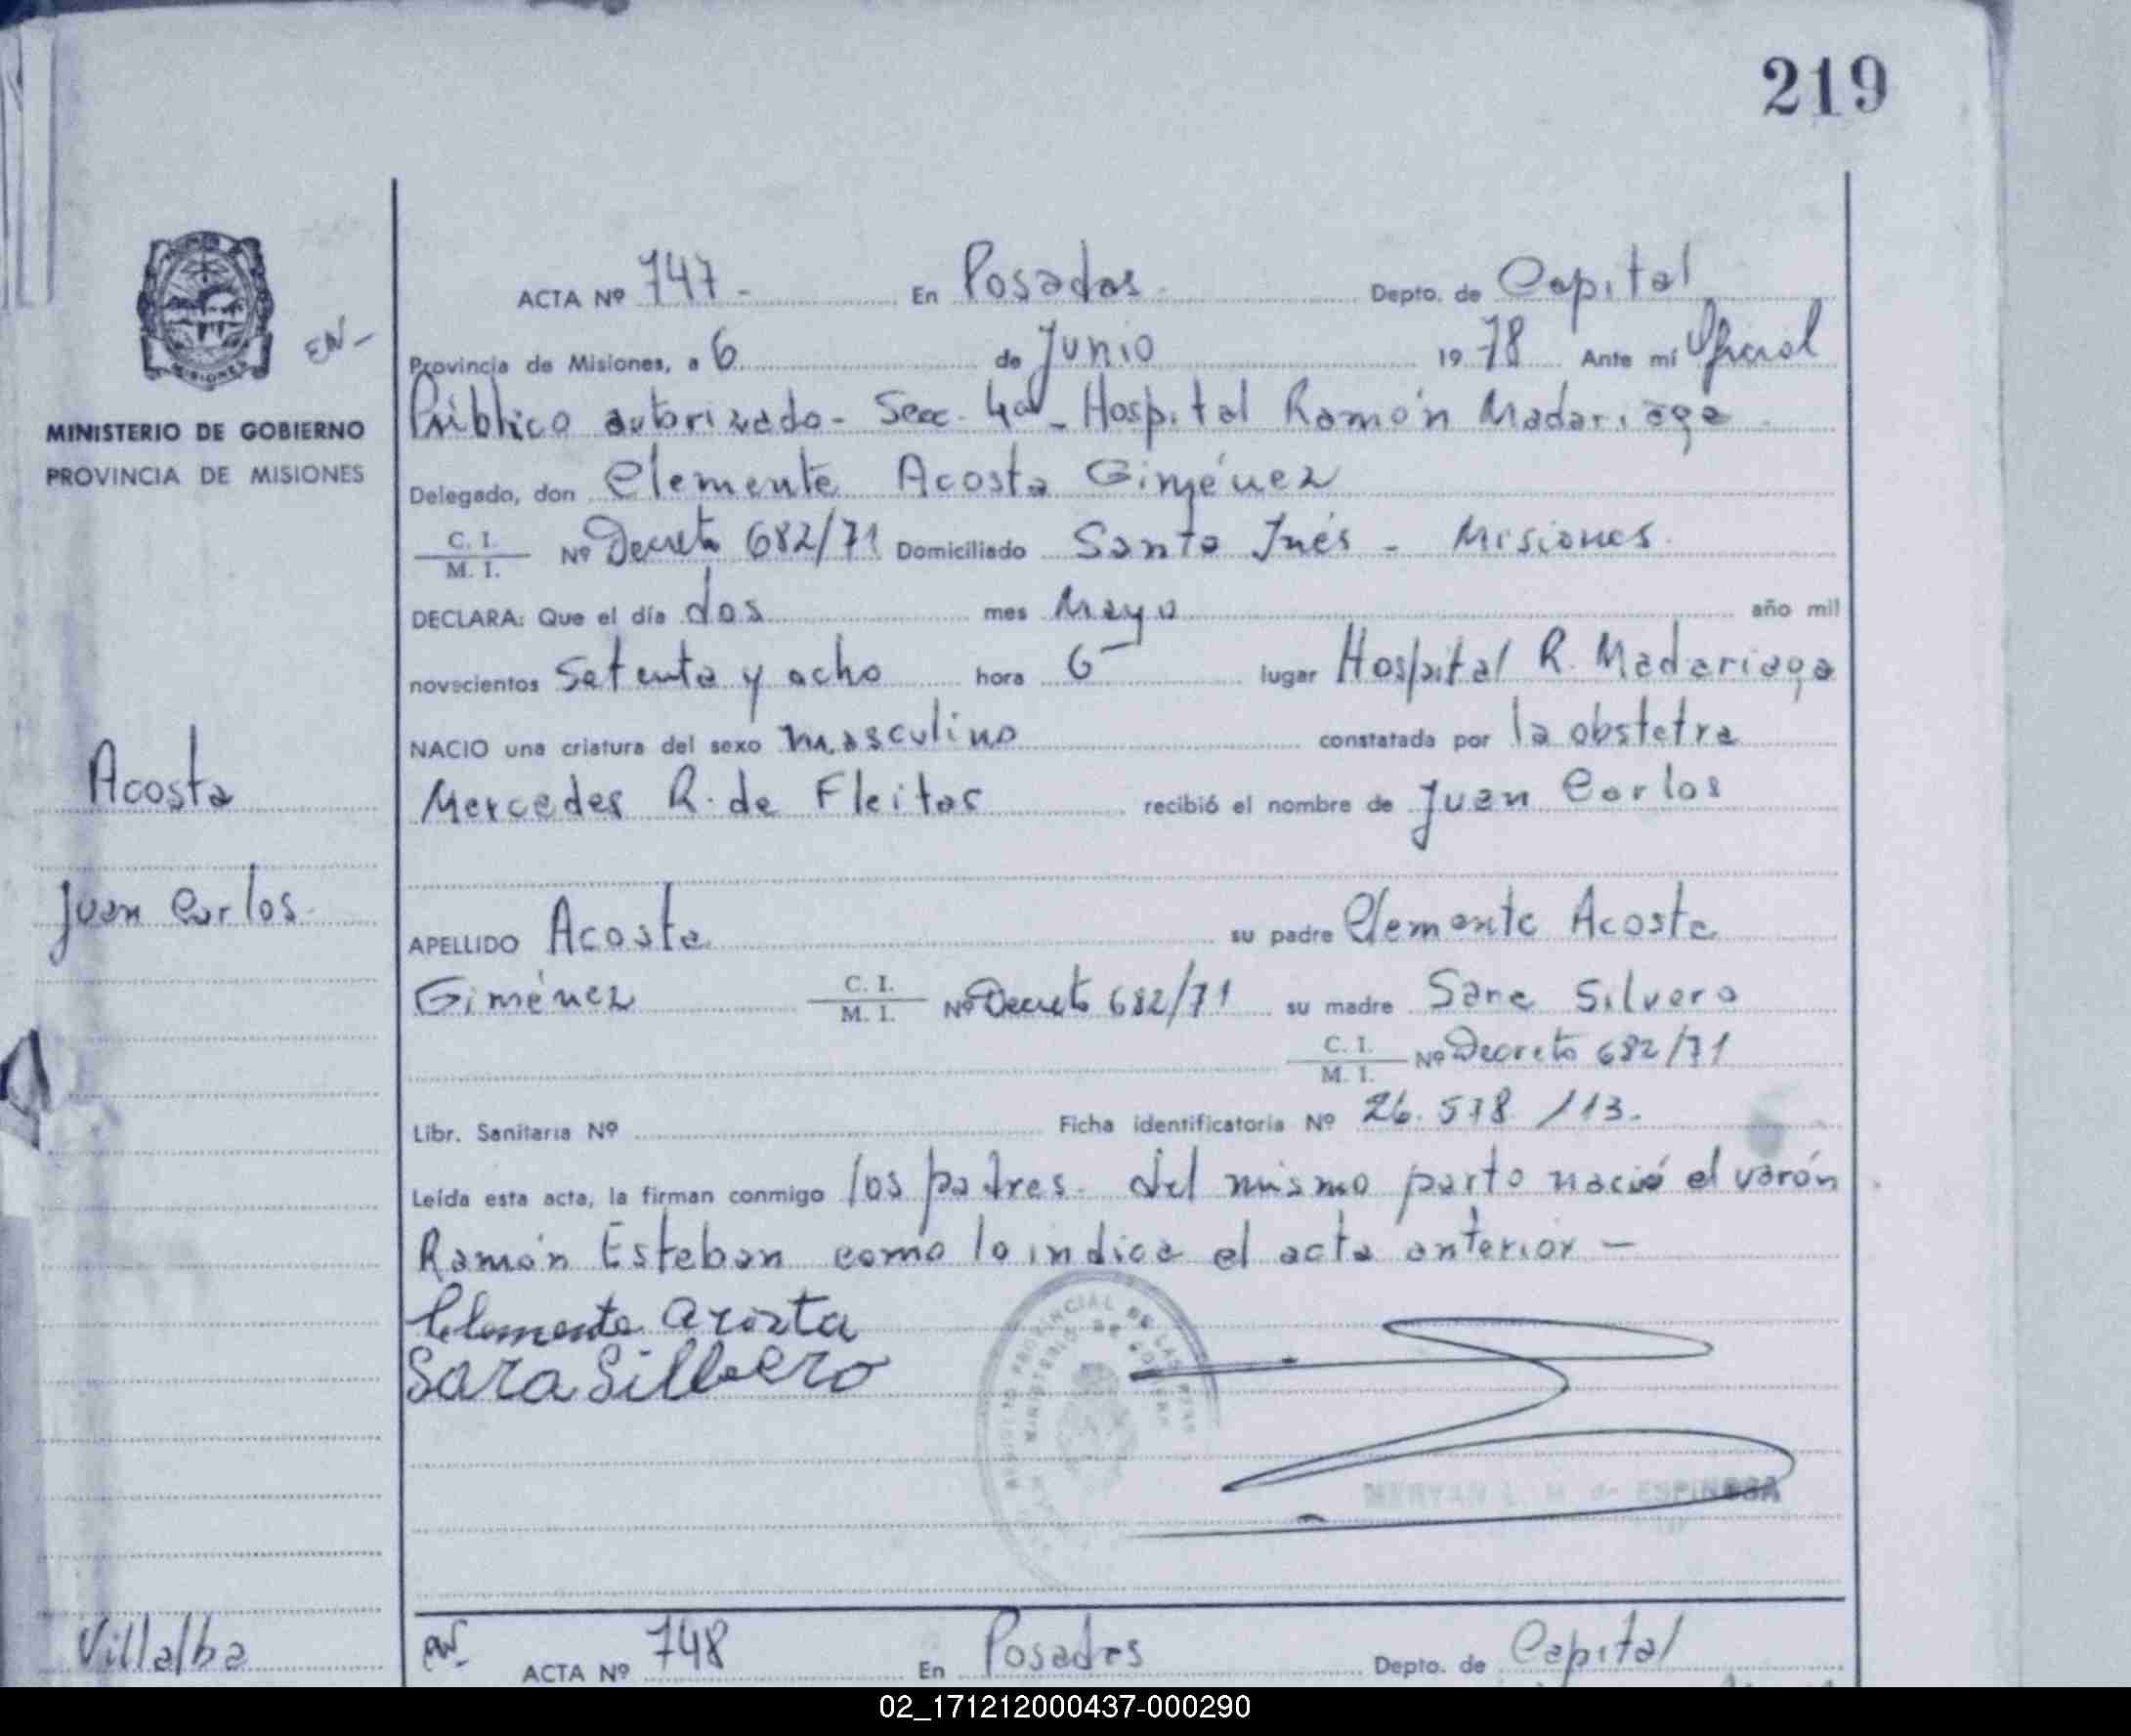 219
MISIONES
EN-
MINISTERIO DE GOBIERNO
PROVINCIA DE MISIONES
Acosta
Juan Carlos.
ACTA Nº 747- En Posadas Depto. de Capital
Provincia de Misiones, a 6 de Junio 1978 Ante mí Oficial
Público autorizado- Secc. 4ª- Hospital Ramón Madariaga
Delegado, don Clemente Acosta Giménez
C. I.
M. I. Nº Decreto 682/71 Domiciliado Santa Inés - Misiones.
DECLARA: Que el día dos mes Mayo año mil
novecientos setenta y ocho hora 6- lugar Hospital R. Madariaga
NACIO una criatura del sexo masculino constatada por la obstetra
Mercedes R. de Fleitas recibió el nombre de Juan Carlos
APELLIDO Acosta su padre Clemente Acosta
Giménez C. I.
M. I. Nº Decreto 682/71 su madre Sara Silvero
C. I.
M. I. Nº Decreto 682/71
Libr. Sanitaria Nº Ficha identificatoria Nº 26.578 /13.
Leída esta acta, la firman conmigo los padres. del mismo parto nació el varón
Ramón Esteban como lo indica el acta anterior -
Clemente Acosta
Sara Silbero
PROVINCIAL DE LAS
MINISTERIO DE
L. M. de ESPINOSA
Villalba
EN- ACTA Nº 748 En Posadas Depto. de Capital
02_171212000437-000290